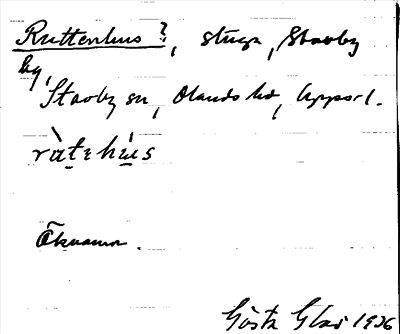 Ruttenhus ?, stuga, Stavby
by,
Stavby sn, Olands hd, Uppsal.
ràtɛhùs
Öknamn.
Gösta Glas 1926